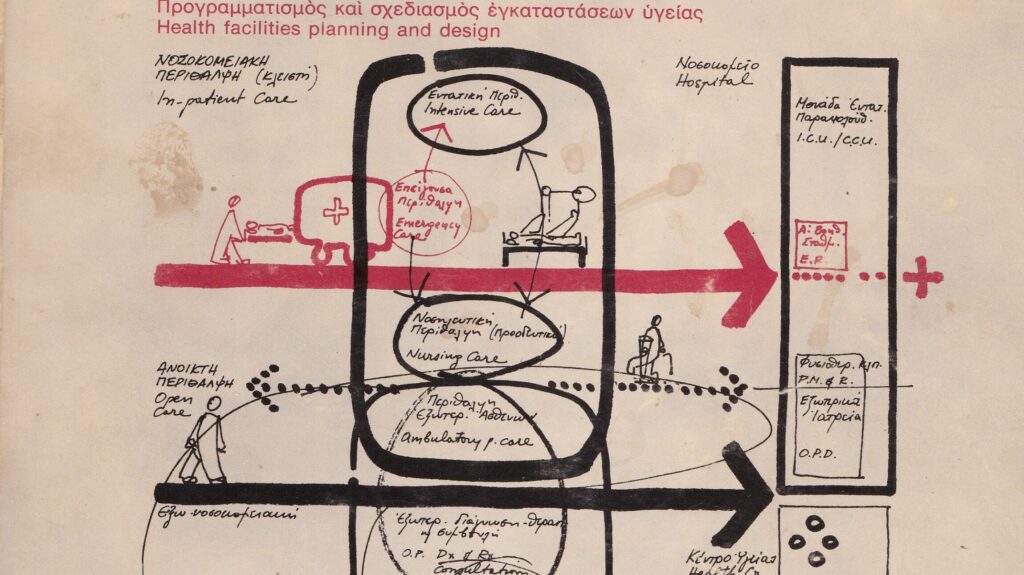 Προγραμματισμὸς καὶ σχεδιασμὸς ἐγκαταστάσεων ὑγείας
Health facilities planning and design
ΝΟΣΟΚΟΜΕΙΑΚΗ
ΠΕΡΙΘΑΛΨΗ (κλειστή)
In-patient Care
Εντατική Περιθ.
Intensive Care
Νοσοκομείο
Hospital
Μονάδα Εντατ.
Παρακολούθ.
I.C.U./C.C.U.
Επείγουσα
Περίθαλψη
Emergency
Care
Α! Βοηθ.
Σταθμ.
E.R.
Νοσηλευτική
Περίθαλψη (Προοδευτική)
Nursing Care
ΑΝΟΙΚΤΗ
ΠΕΡΙΘΑΛΨΗ
Open
Care
Περίθαλψη
Εξωτερ. Ασθενών
Ambulatory p. care
Φυσιοθερ. κλπ.
P.M. & R.
Εξωτερικά
Ιατρεία
O.P.D.
Εξω-νοσοκομειακή
Εξωτερ. διάγνωση-θεραπ
συμβουλή
O.P. Dx & Rx
Consultation
Κέντρο Υγείας
Health